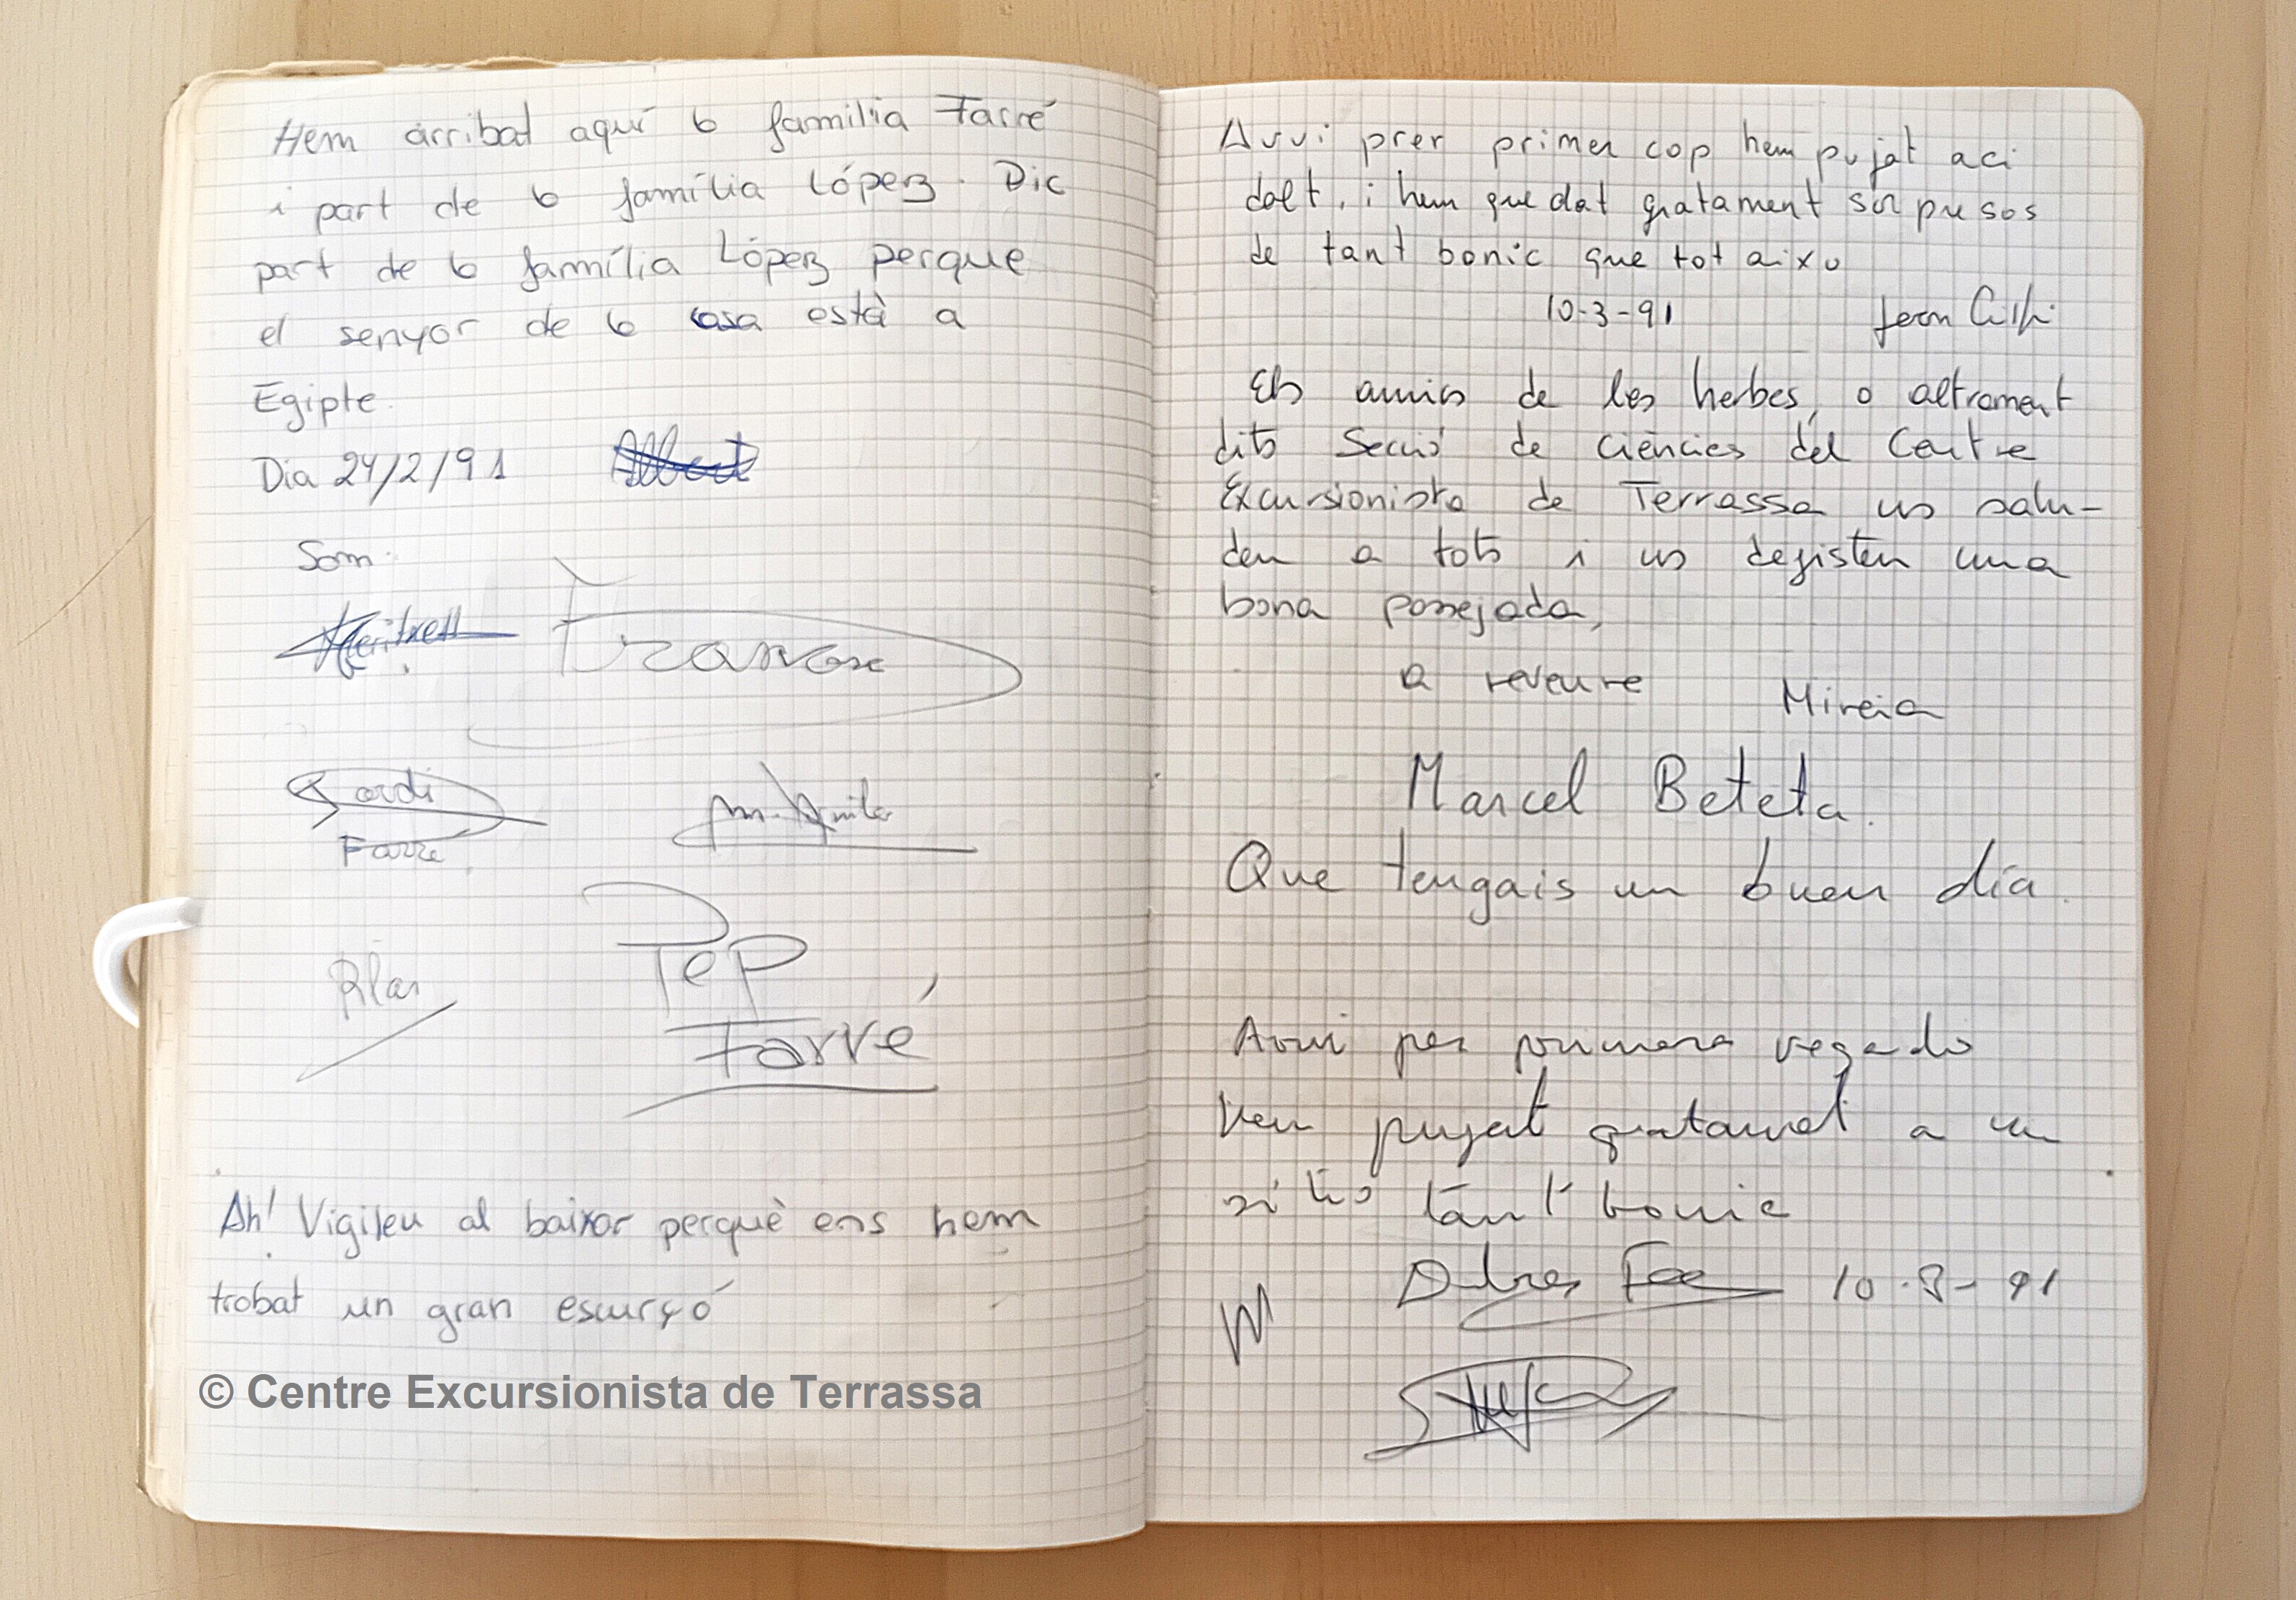 Hem arribat aquí la familia Farré
i part de la família López. Dic
part de la família López perque
el senyor de la casa està a
Egipte.
Dia 24/2/91 Albert
Som:
Meritxell Francesc
Jordi
Farré
Pep
Farré
Ah! Vigileu al baixar perquè ens hem
trobat un gran escurçó
© Centre Excursionista de Terrassa
Avui prer primer cop hem pujat aci
dalt, i hem quedat gratament sorpresos
de tant bonic que tot aixo
10-3-91
Els amics de les herbes, o altrament
dits Secció de Ciències del Centre
Excursionista de Terrassa us salu-
den a tots i us desitgen una
bona passejada,
a reveure Mireia
Marcel Beteta.
Que tengais un buen día.
Avui per primera vegada
hem pujat gratament a un
sitio tant bonic
10-3-91